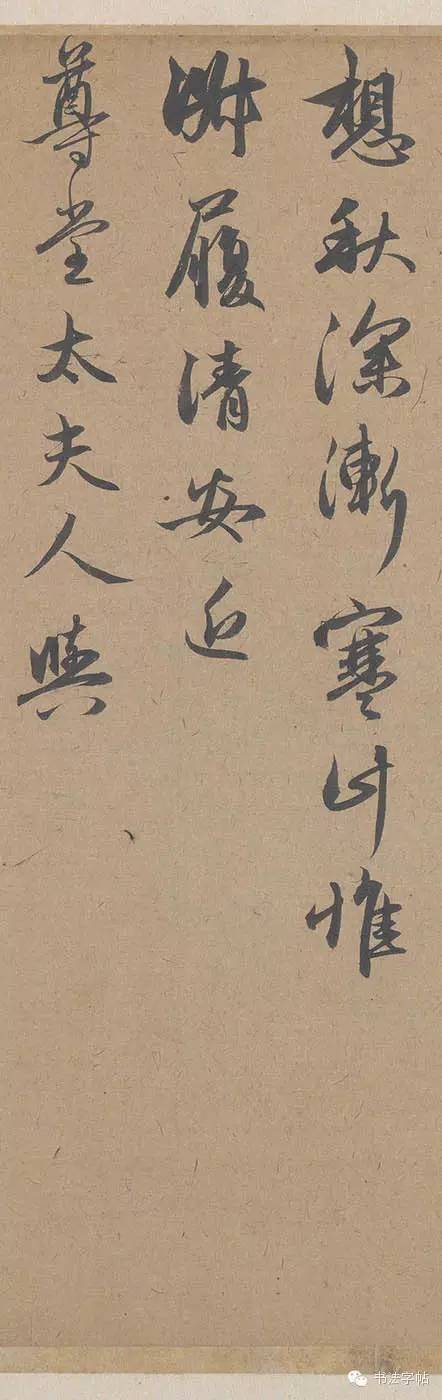 想秋深漸寒惟
履清安近
尊堂太夫人與
书法字帖